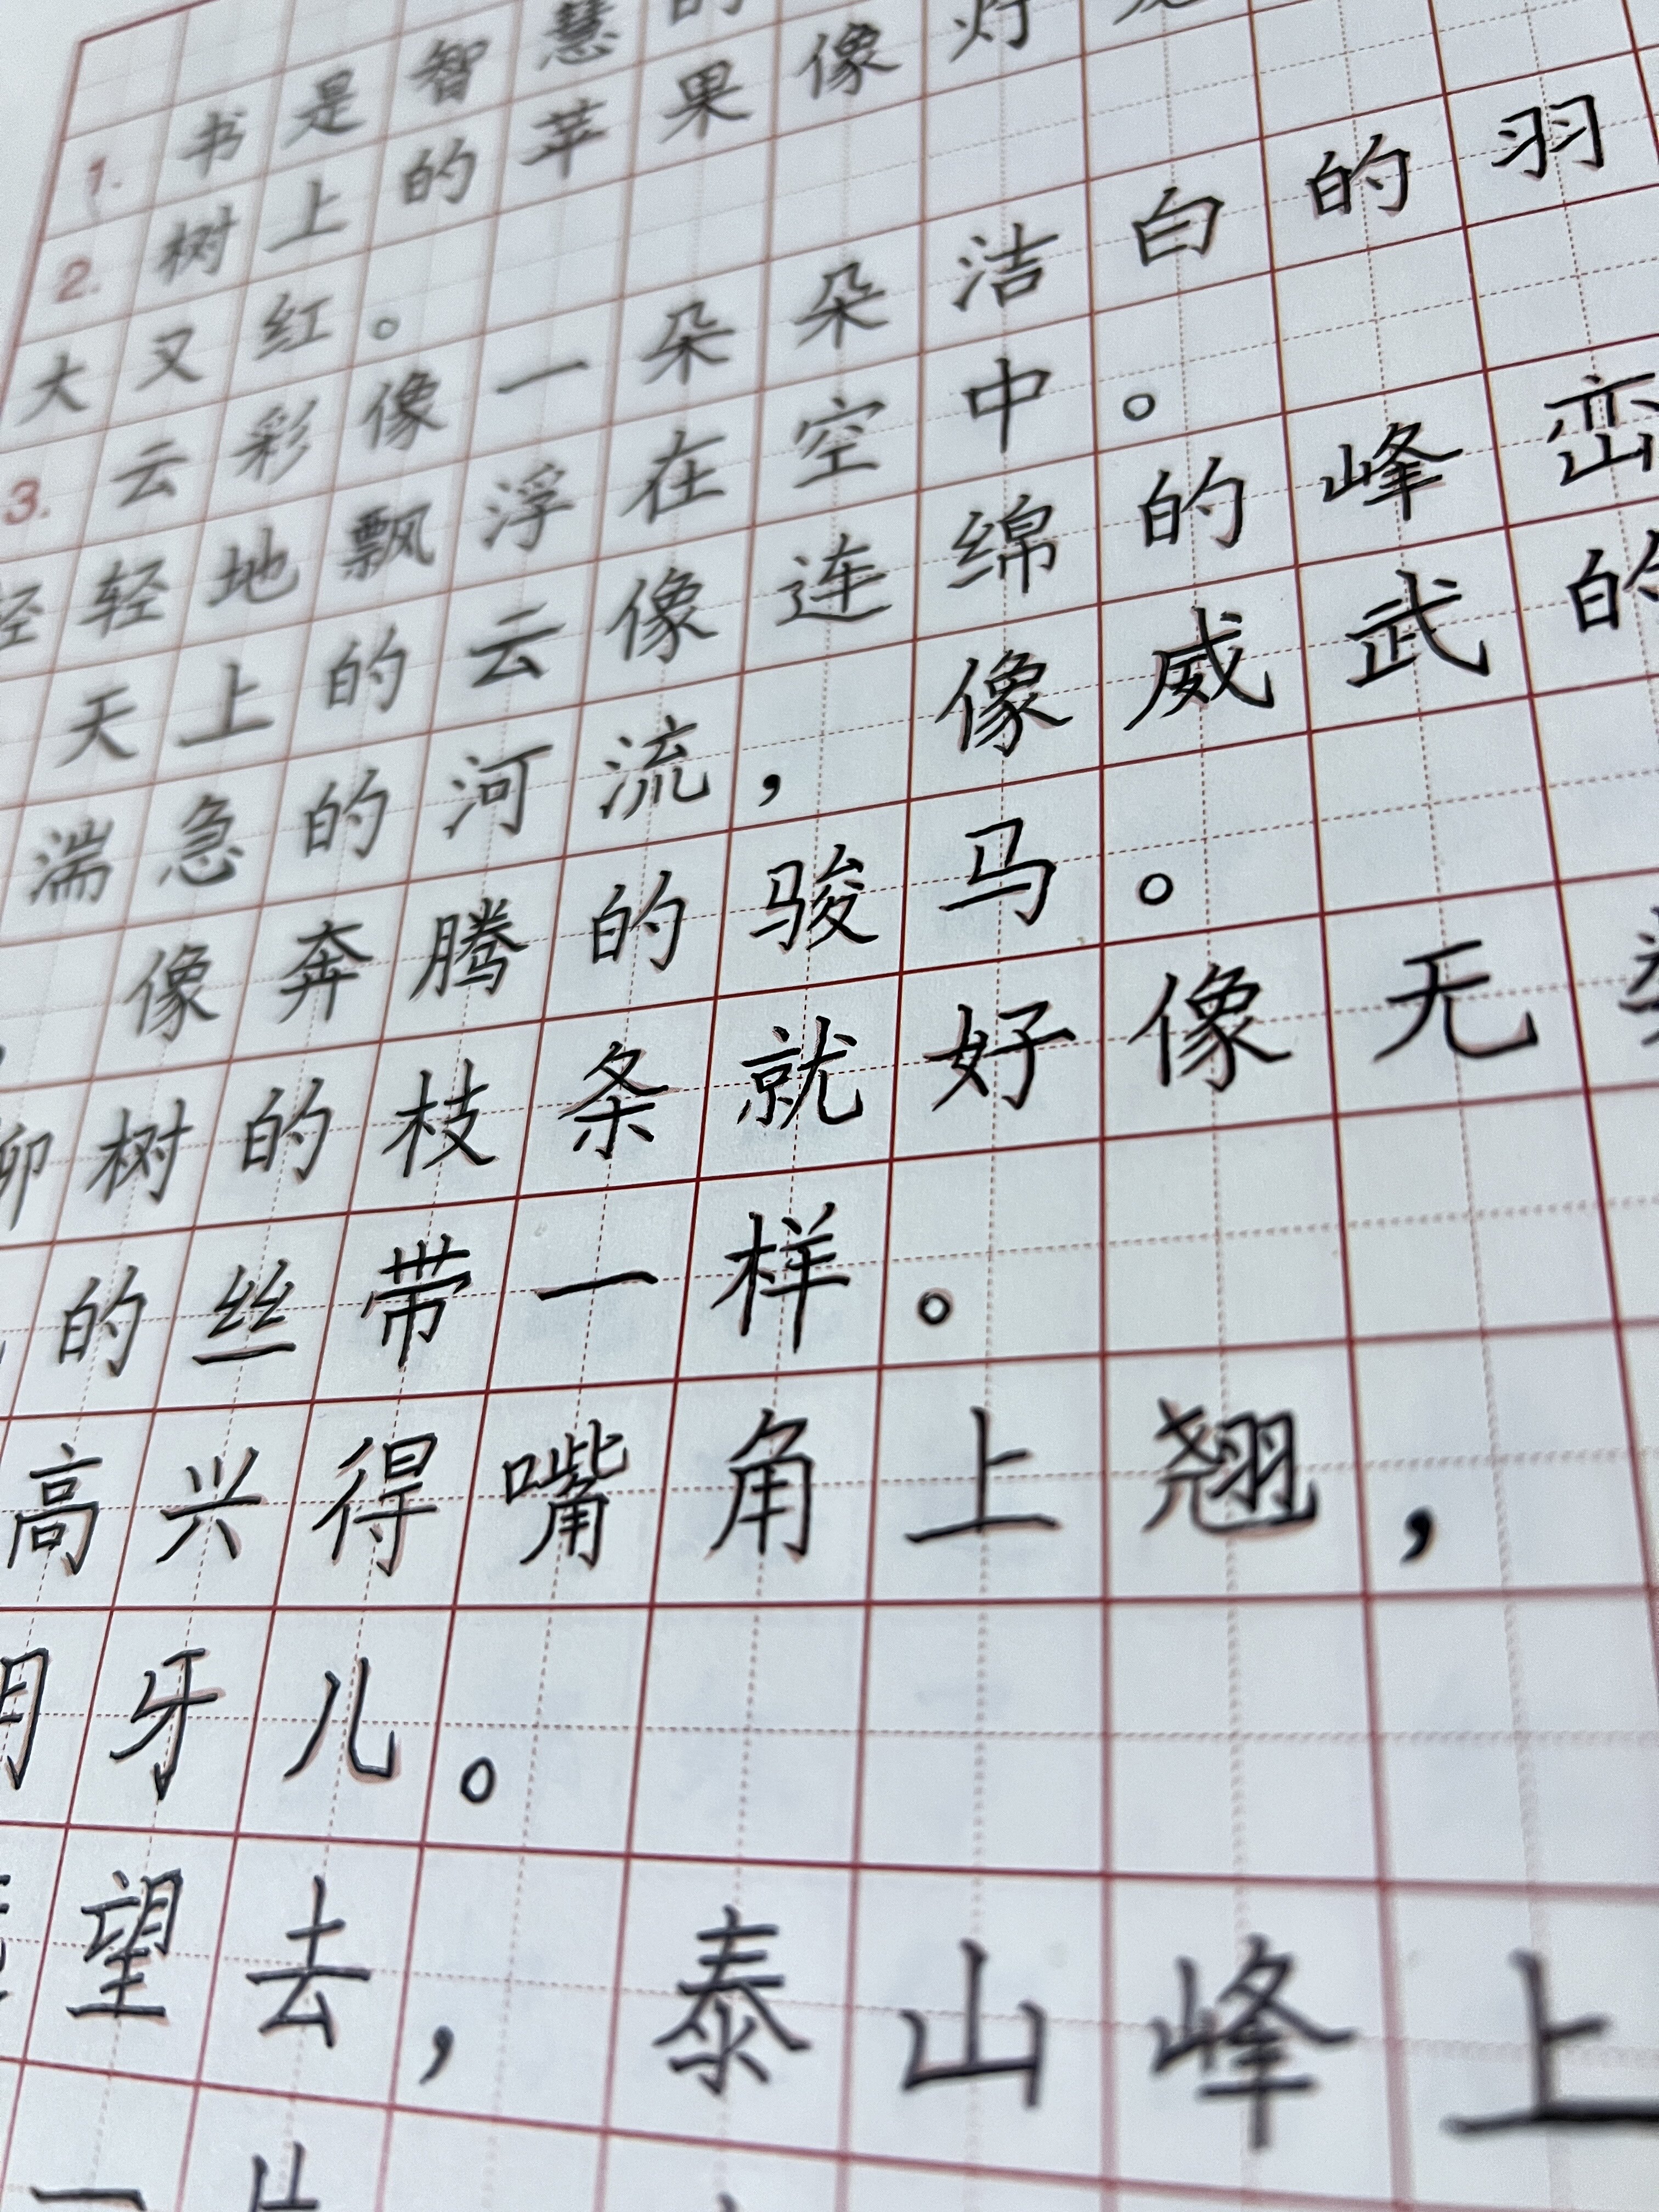 1. 书是智慧的
2. 树上的苹果像灯
大又红。
3. 云彩像一朵朵洁白的羽
轻轻地飘浮在空中。
天上的云像连绵的峰峦
湍急的河流，像威武的
像奔腾的骏马。
柳树的枝条就好像无数
的丝带一样。
高兴得嘴角上翘，
月牙儿。
望去，泰山峰上
一片